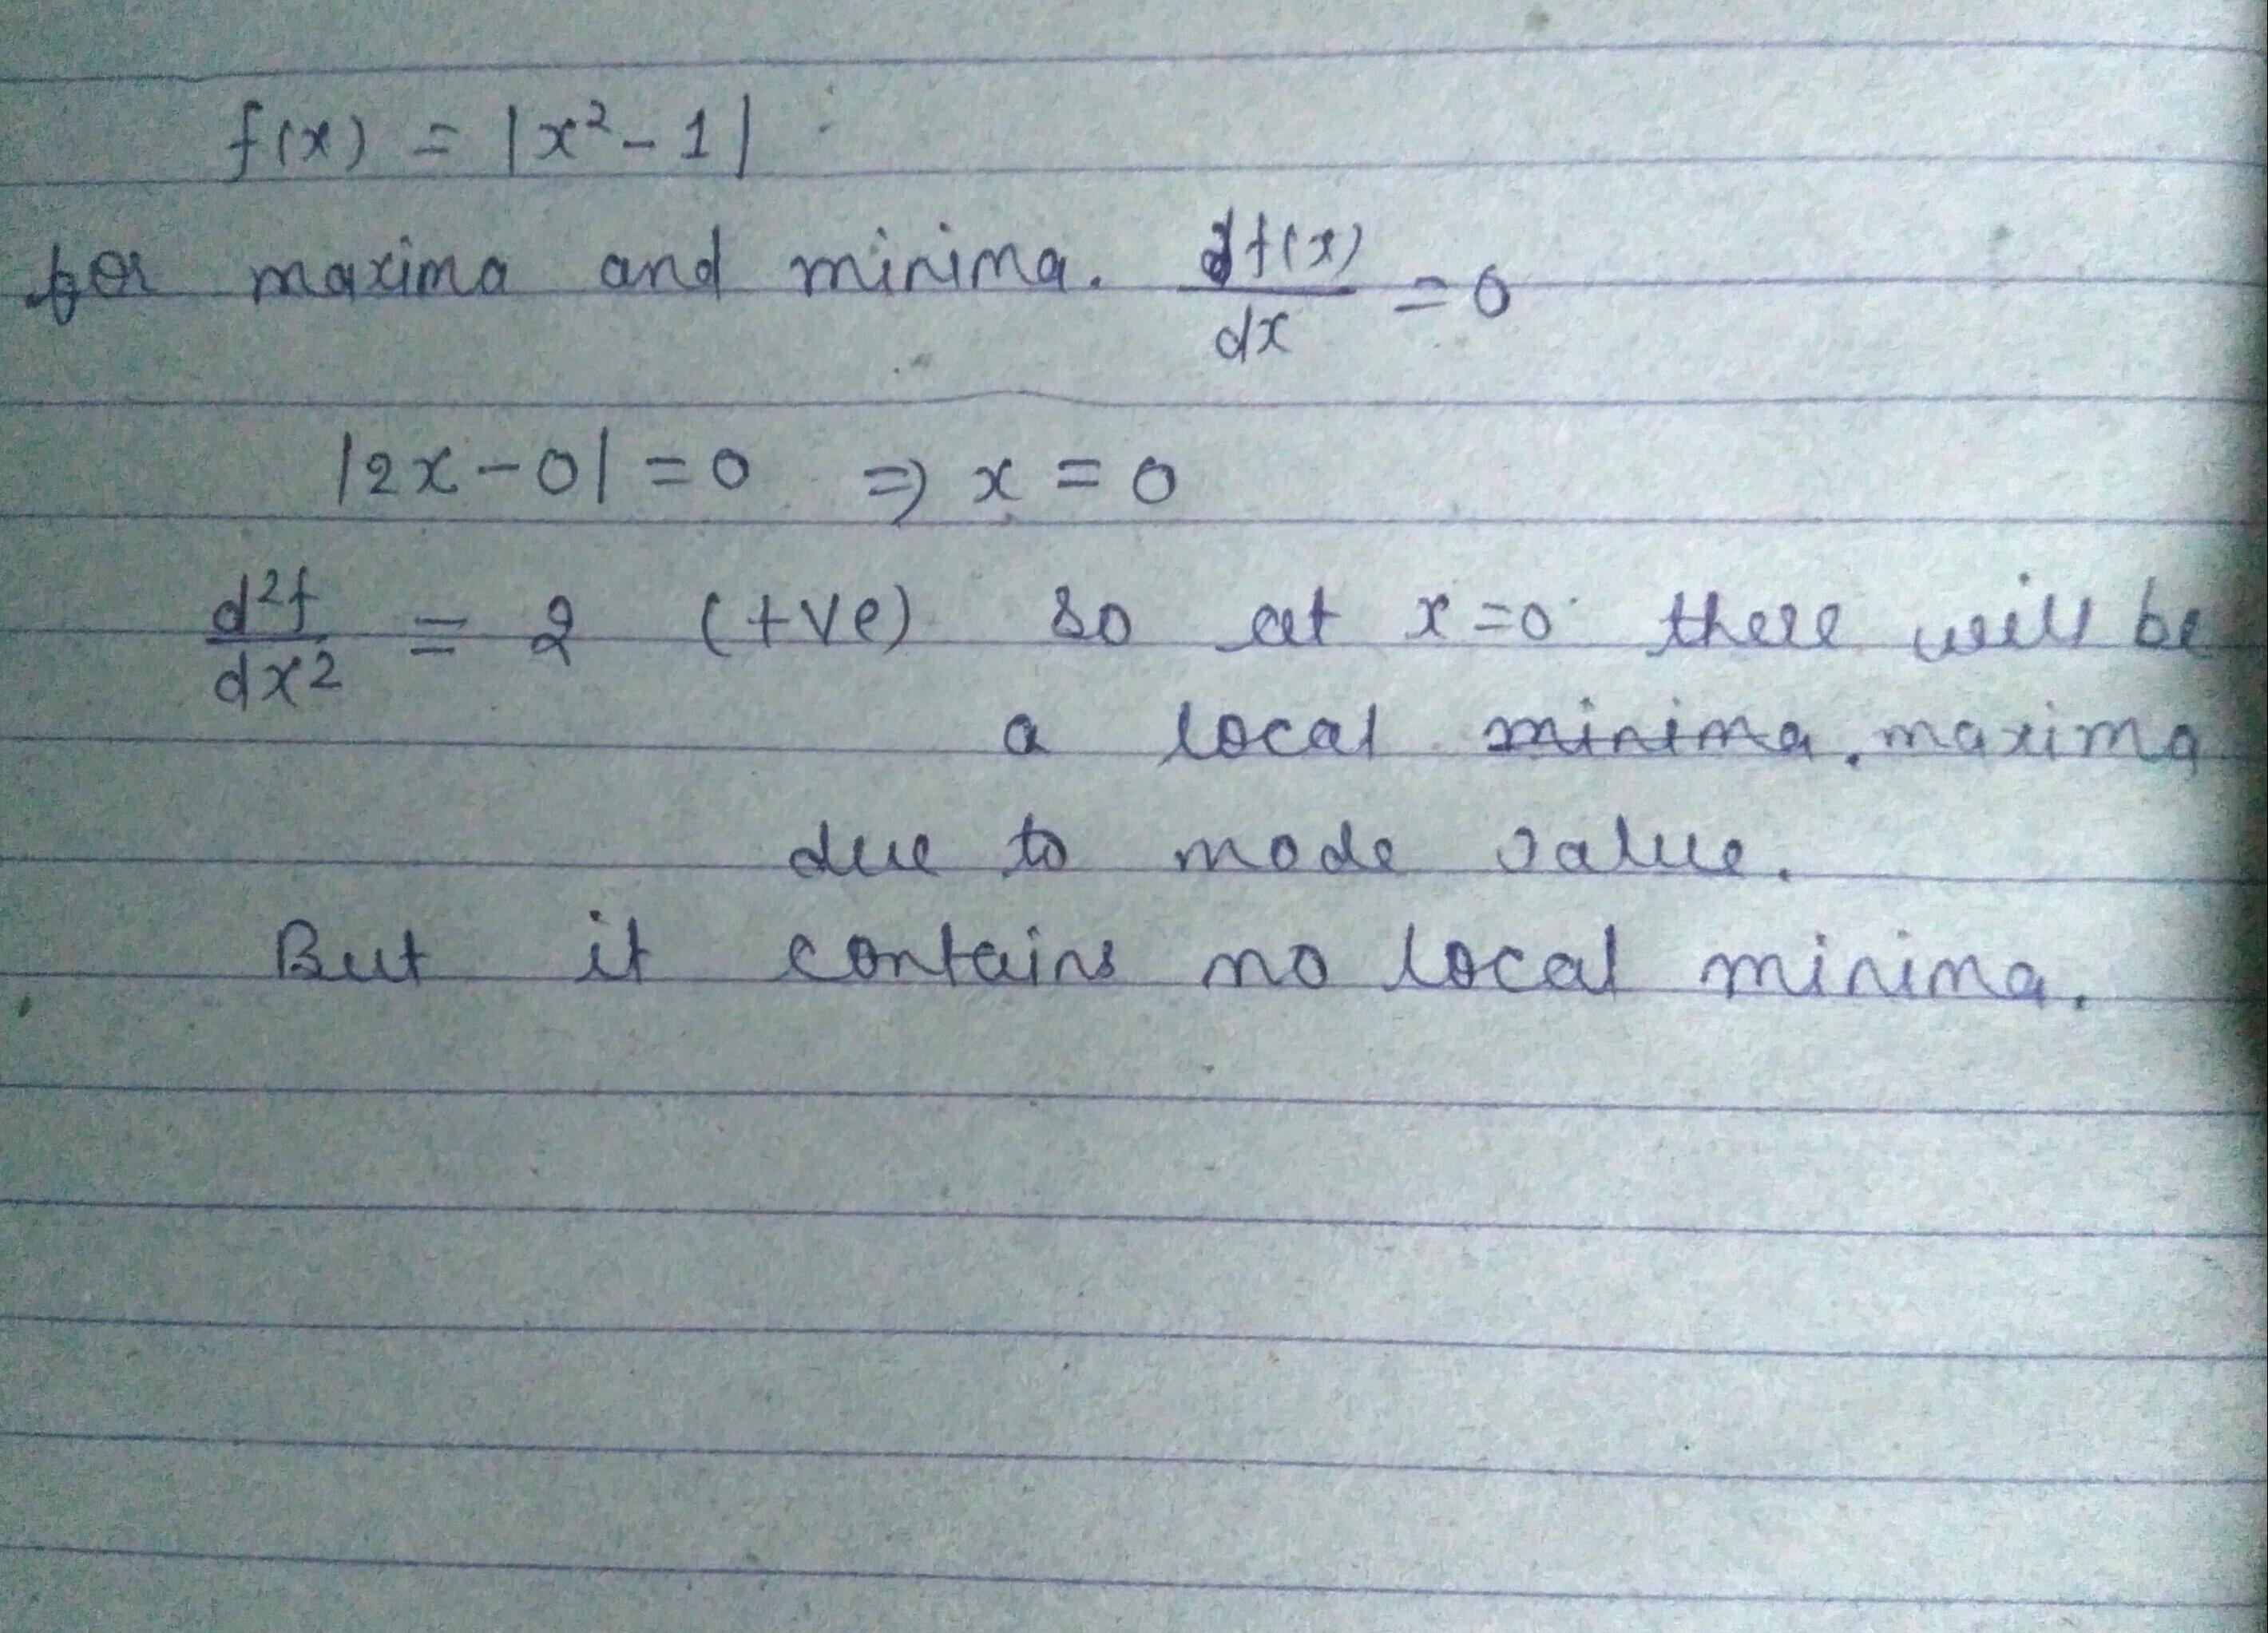 f(x) = |x² - 1|
for maxima and minima. df(x)/dx = 0
|2x - 0| = 0 ⇒ x = 0
d²f/dx² = 2 (+ve) so at x=0 there will be
a local minima. maxima
due to mode value.
But it contains no local minima.